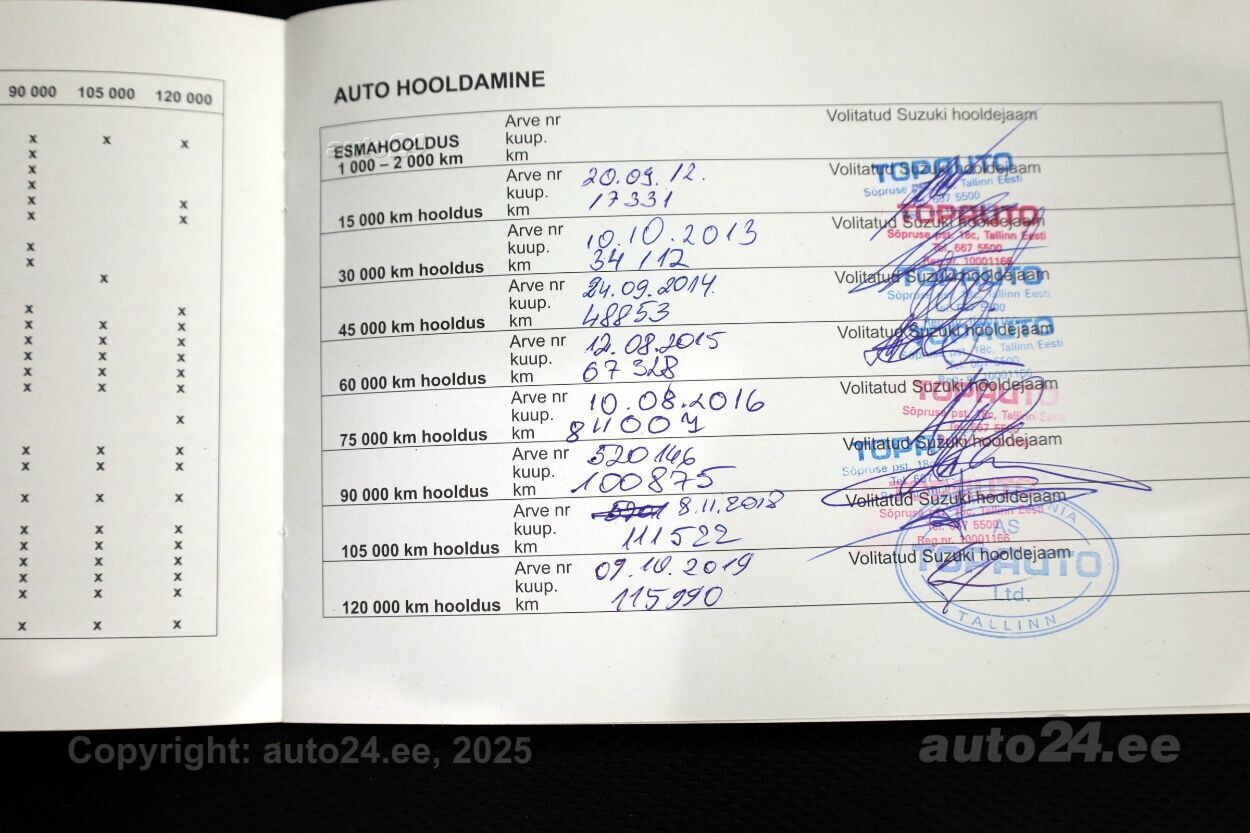 90 000 105 000 120 000
x x x
x
x
x
x x
x x
x
x
x
x x
x x x
x x x
x x x
x x x
x x x
x
x x x
x x x
x x x
x x x
x x x
x x x
x x x
x x x
x x x
AUTO HOOLDAMINE
ESMAHOOLDUS
1 000 – 2 000 km
Arve nr
kuup.
km
Volitatud Suzuki hooldejaam
15 000 km hooldus
Arve nr
kuup. 20.09.12.
km 17331
Volitatud Suzuki hooldejaam
TOPAUTO
Sõpruse Tallinn Eesti
667 5500
30 000 km hooldus
Arve nr
kuup. 10.10.2013
km 34112
Volitatud Suzuki hooldejaam
TOPAUTO
Sõpruse pst. 18c, Tallinn Eesti
Tel. 667 5500
Reg.nr. 10001166
45 000 km hooldus
Arve nr
kuup. 24.09.2014.
km 48853
Volitatud Suzuki hooldejaam
TOPAUTO
60 000 km hooldus
Arve nr
kuup. 12.08.2015
km 67328
Volitatud Suzuki hooldejaam
TOPAUTO
18c, Tallinn Eesti
75 000 km hooldus
Arve nr
kuup. 10.08.2016
km
Volitatud Suzuki hooldejaam
TOPAUTO
Sõpruse pst. 18c, Tallinn Eesti
90 000 km hooldus
Arve nr 520146
kuup.
km 100875
Volitatud Suzuki hooldejaam
Sõpruse pst.
105 000 km hooldus
Arve nr 8.11.2018
kuup.
km 111522
Volitatud Suzuki hooldejaam
Reg.nr. 10001166
120 000 km hooldus
Arve nr 09.10.2019
kuup.
km 115990
Volitatud Suzuki hooldejaam
AS
TOPAUTO
Ltd.
TALLINN
Copyright: auto24.ee, 2025
auto24.ee